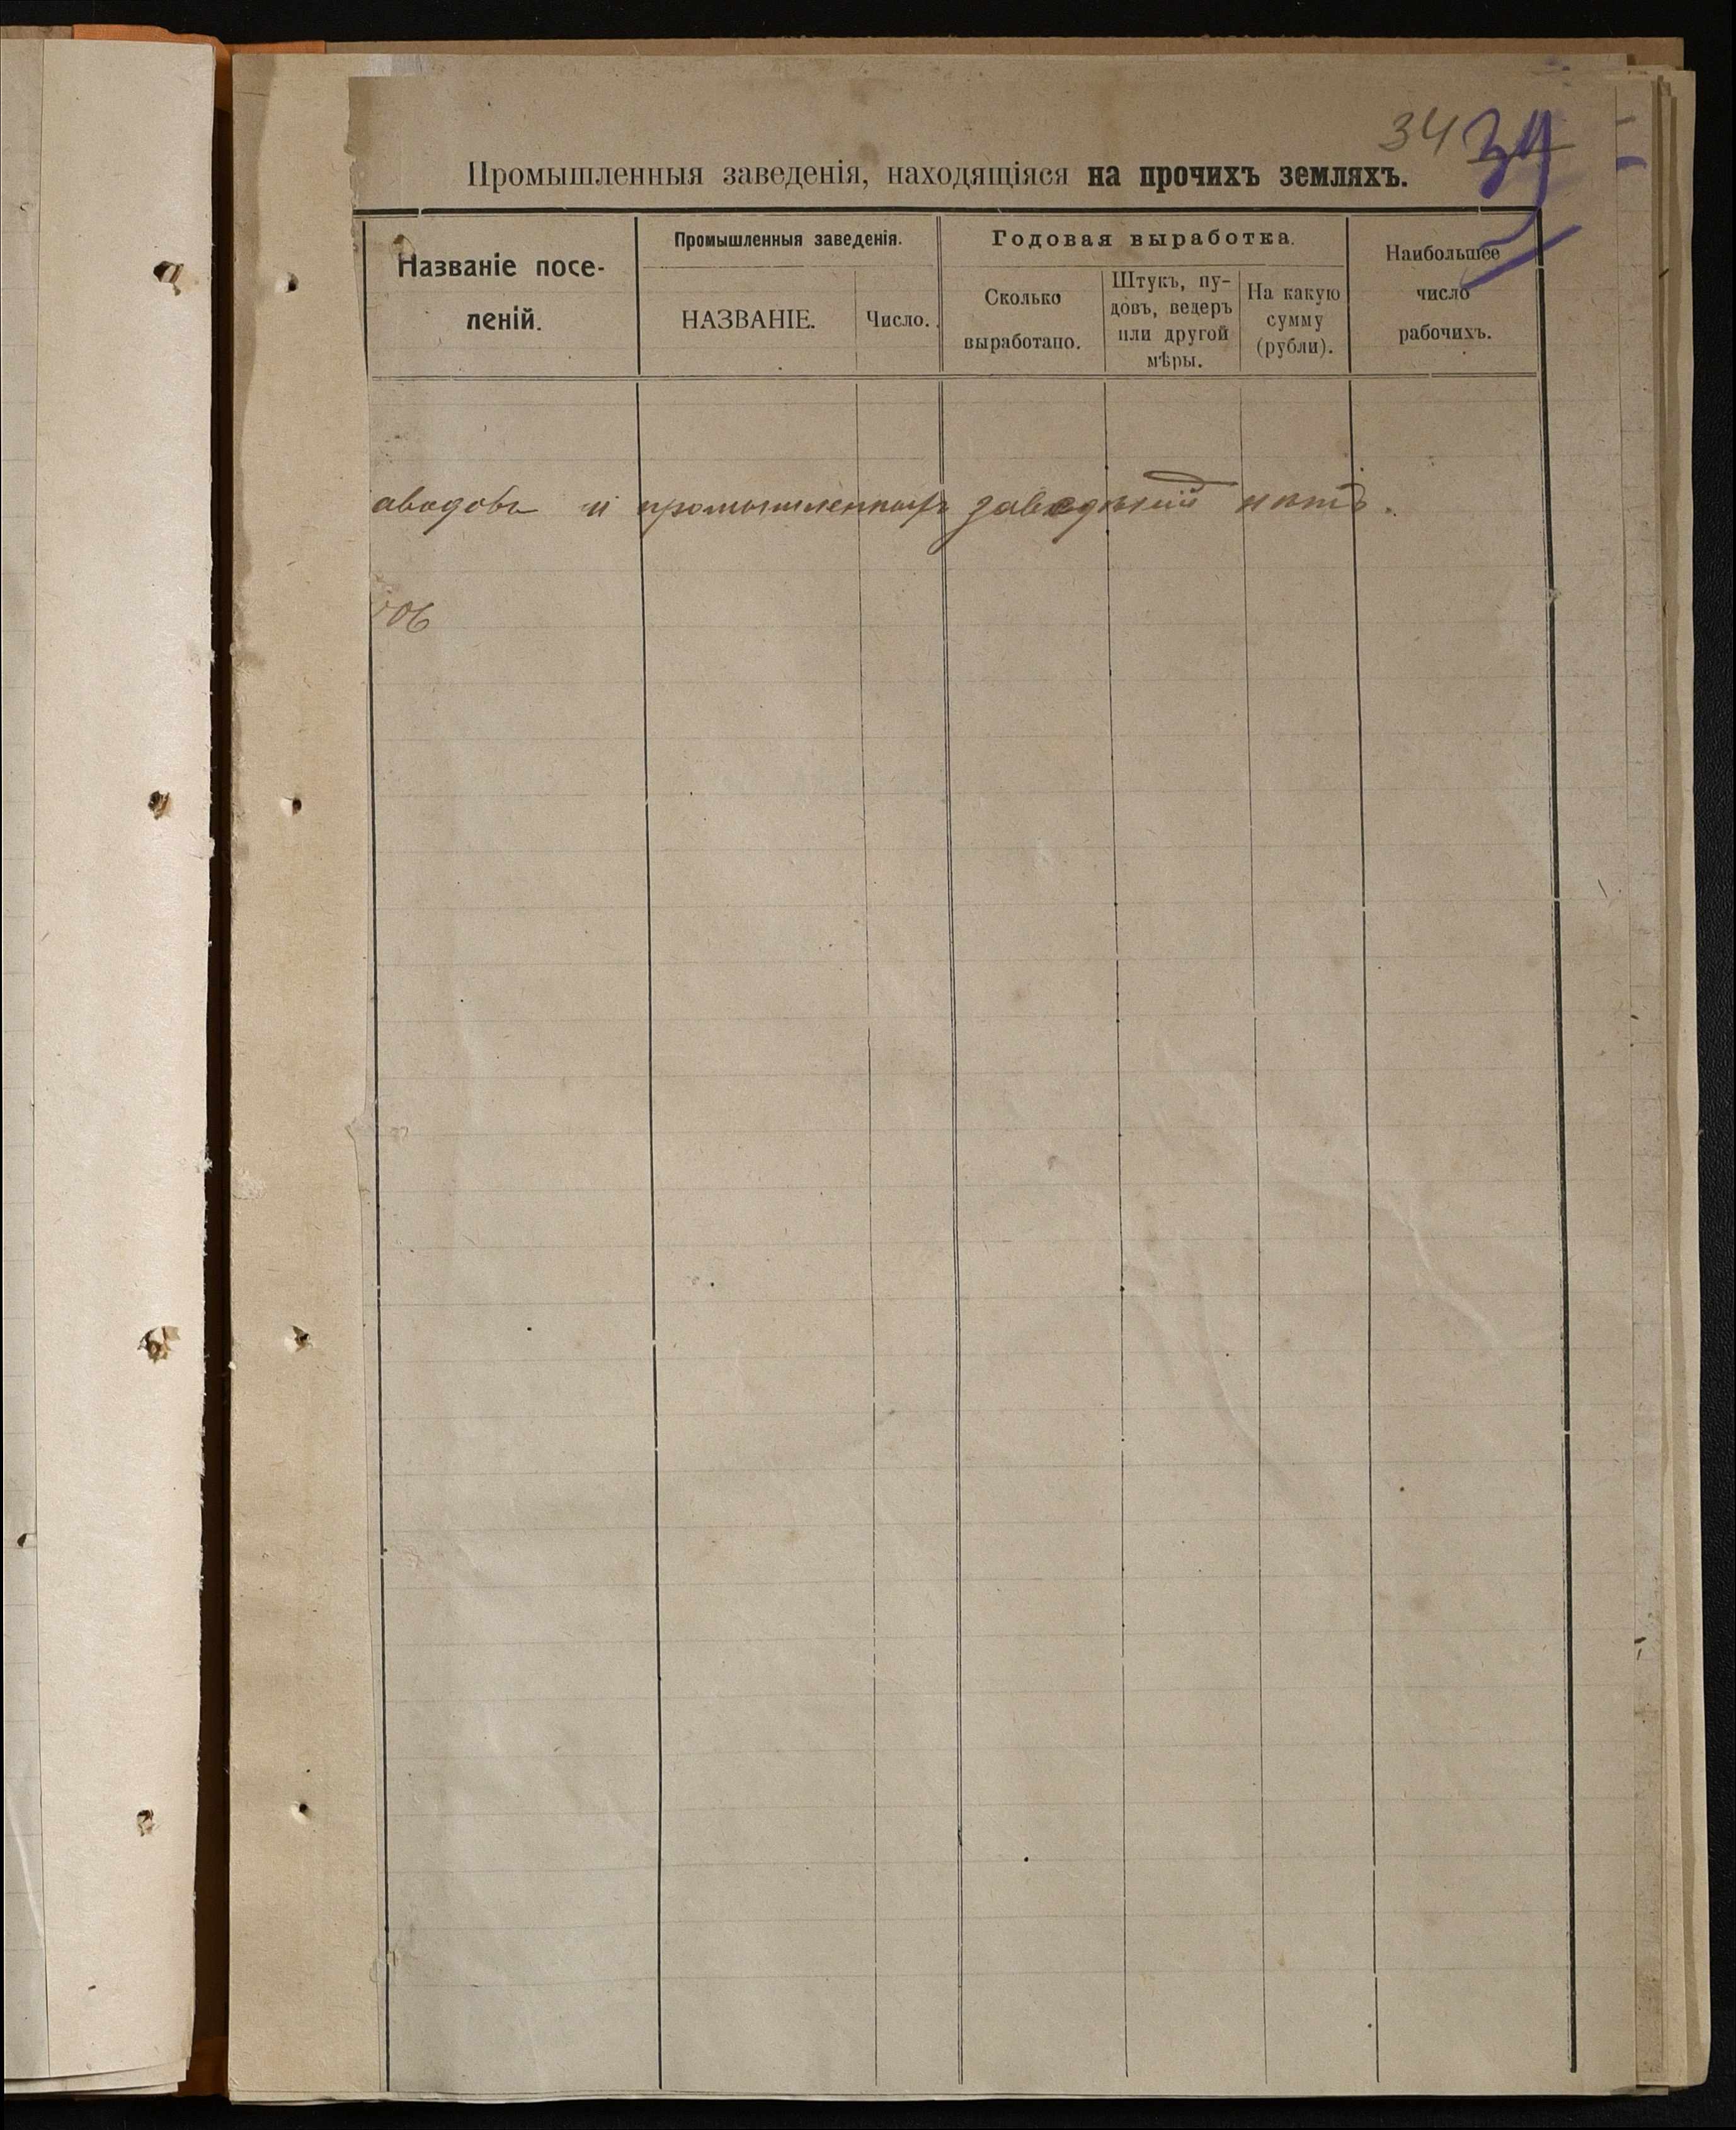 34 34
Промышленныя заведенія, находящіяся на прочихъ земляхъ.
Названіе посе-
леній.
Промышленныя заведенія.
НАЗВАНІЕ.
Число.
Годовая выработка.
Сколько
выработано.
Штукъ, пу-
довъ, ведеръ
или другой
мѣры.
На какую
сумму
(рубли).
Наибольшее
число
рабочихъ.
аводовъ и промышленныхъ заведеній нѣтъ.